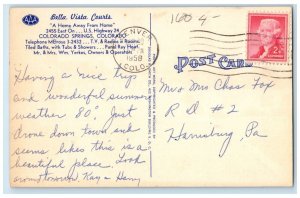 Bella Vista Courts
"A Home Away From Home"
2455 East On . . . U.S. Highway 24
COLORADO SPRINGS, COLORADO
Telephone MElrose 3-2433 . . . T.V. & Radios in Rooms
Tiled Baths, with Tubs & Showers . . . Panel Ray Heat
Mr. & Mrs. Wm. Yerkes, Owners & Operators
1600 4-
DENVER
1958
COLO.
POST CARD
2¢
Having a nice trip
and wonderful summer
weather 80°. Just
drove down town and
seems like this is a
beautiful place. Look
around tomorrow. Kay & Henry
Mr & Mrs Chas Fox
R D # 2
Harrisburg, Pa